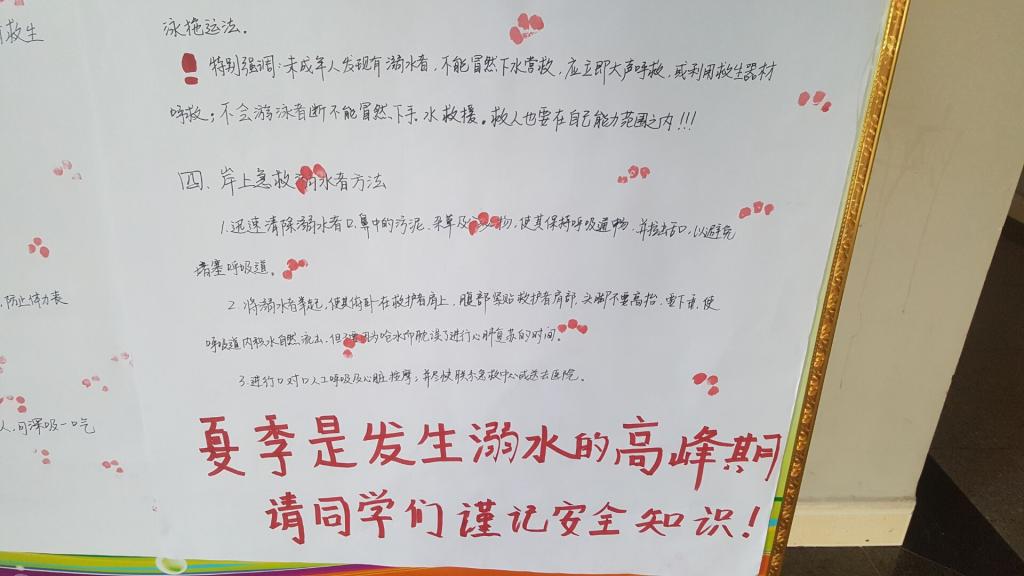 有救生
泳拖运法.
特别强调:未成年人发现有溺水者,不能冒然下水营救,应立即大声呼救,或利用救生器材
呼救;不会游泳者断不能冒然下手水救援。救人也要在自己能力范围之内!!!
四、岸上急救溺水者方法
1.迅速清除溺水者口、鼻中的污泥、杂草及分泌物,使其保持呼吸通畅,并拉出舌头,以避免
堵塞呼吸道。
2.将溺水者举起,使其俯卧在救护者肩上,腹部紧贴救护者肩部,头脚不要高抬,要下垂,使
呼吸道内积水自然流出,但不要因为呛水而耽误了进行心肺复苏的时间。
3.进行口对口人工呼吸及心脏按摩;并尽快联系急救中心或送去医院。
,防止体力衰
人,向深吸一口气
夏季是发生溺水的高峰期
请同学们谨记安全知识!